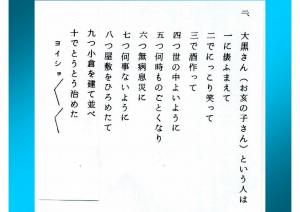 二、大黒さん（お亥の子さん）という人は
一に俵ふまえて
二でにっこり笑って
三で酒作って
四つ世の中よいように
五つ何時ものごとくなり
六つ無病息災に
七つ何事ないように
八つ屋敷をひろめたて
九つ小倉を建て並べ
十でとうとう治めた
ヨイショ〳〵〳〵